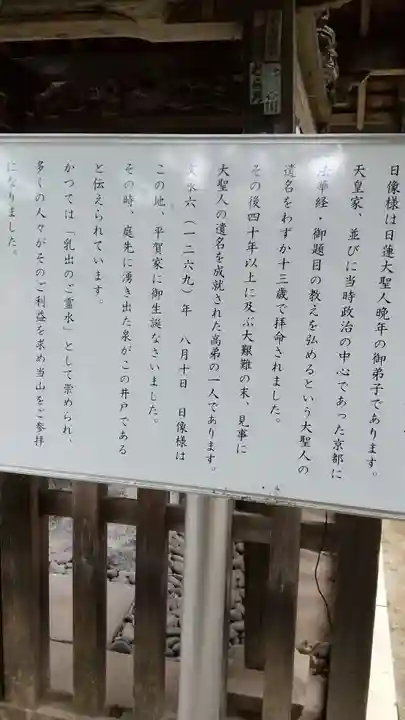 日像様は日蓮大聖人晩年の御弟子であります。
天皇家、並びに当時政治の中心であった京都に
法華経・御題目の教えを弘めるという大聖人の
遺名をわずか十三歳で拝命されました。
その後四十年以上に及ぶ大艱難の末、見事に
大聖人の遺名を成就された高弟の一人であります。
文永六(一二六九)年　八月十日　日像様は
この地、平賀家に御生誕なさいました。
その時、庭先に湧き出た泉がこの井戸である
と伝えられています。
かつては「乳出のご霊水」として崇められ、
多くの人々がそのご利益を求め当山をご参拝
になりました。